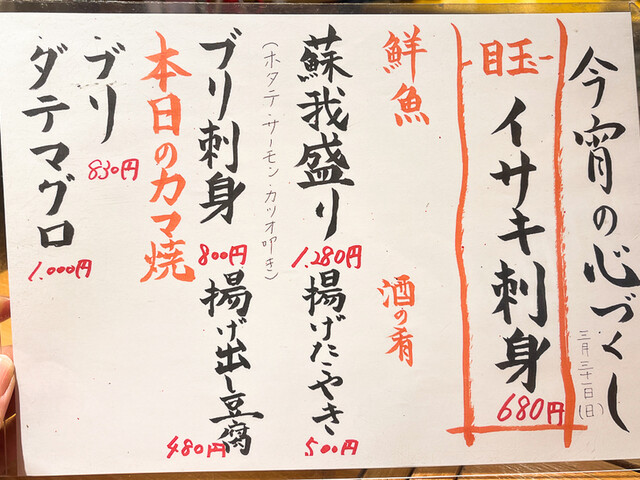 今宵の心づくし
三月三十一日(日)
目玉
イサキ刺身
680円
鮮魚
蘇我盛り
1,280円
(ホタテ・サーモン・カツオ叩き)
ブリ刺身
800円
酒の肴
揚げたこやき
500円
揚げ出し豆腐
480円
本日のカマ焼
ブリ
830円
ダテマグロ
1,000円